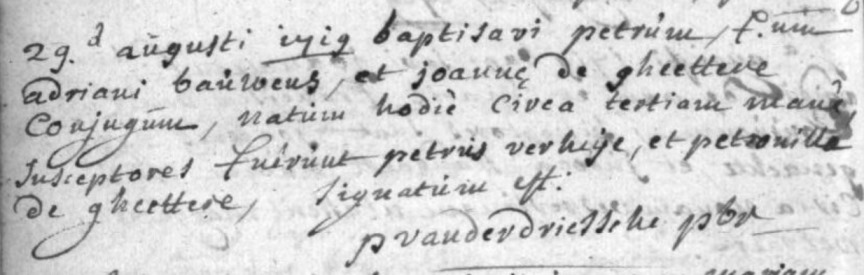 29.d augusti 1719 baptisavi petrum, f.um
adriani bauwens, et joannę de gheettere
Conjugum, natum hodiè circa tertiam manè,
susceptores fuêrunt petrus verheije, et petronilla
de gheettere, signatum est:
p vanderdriessche pbr